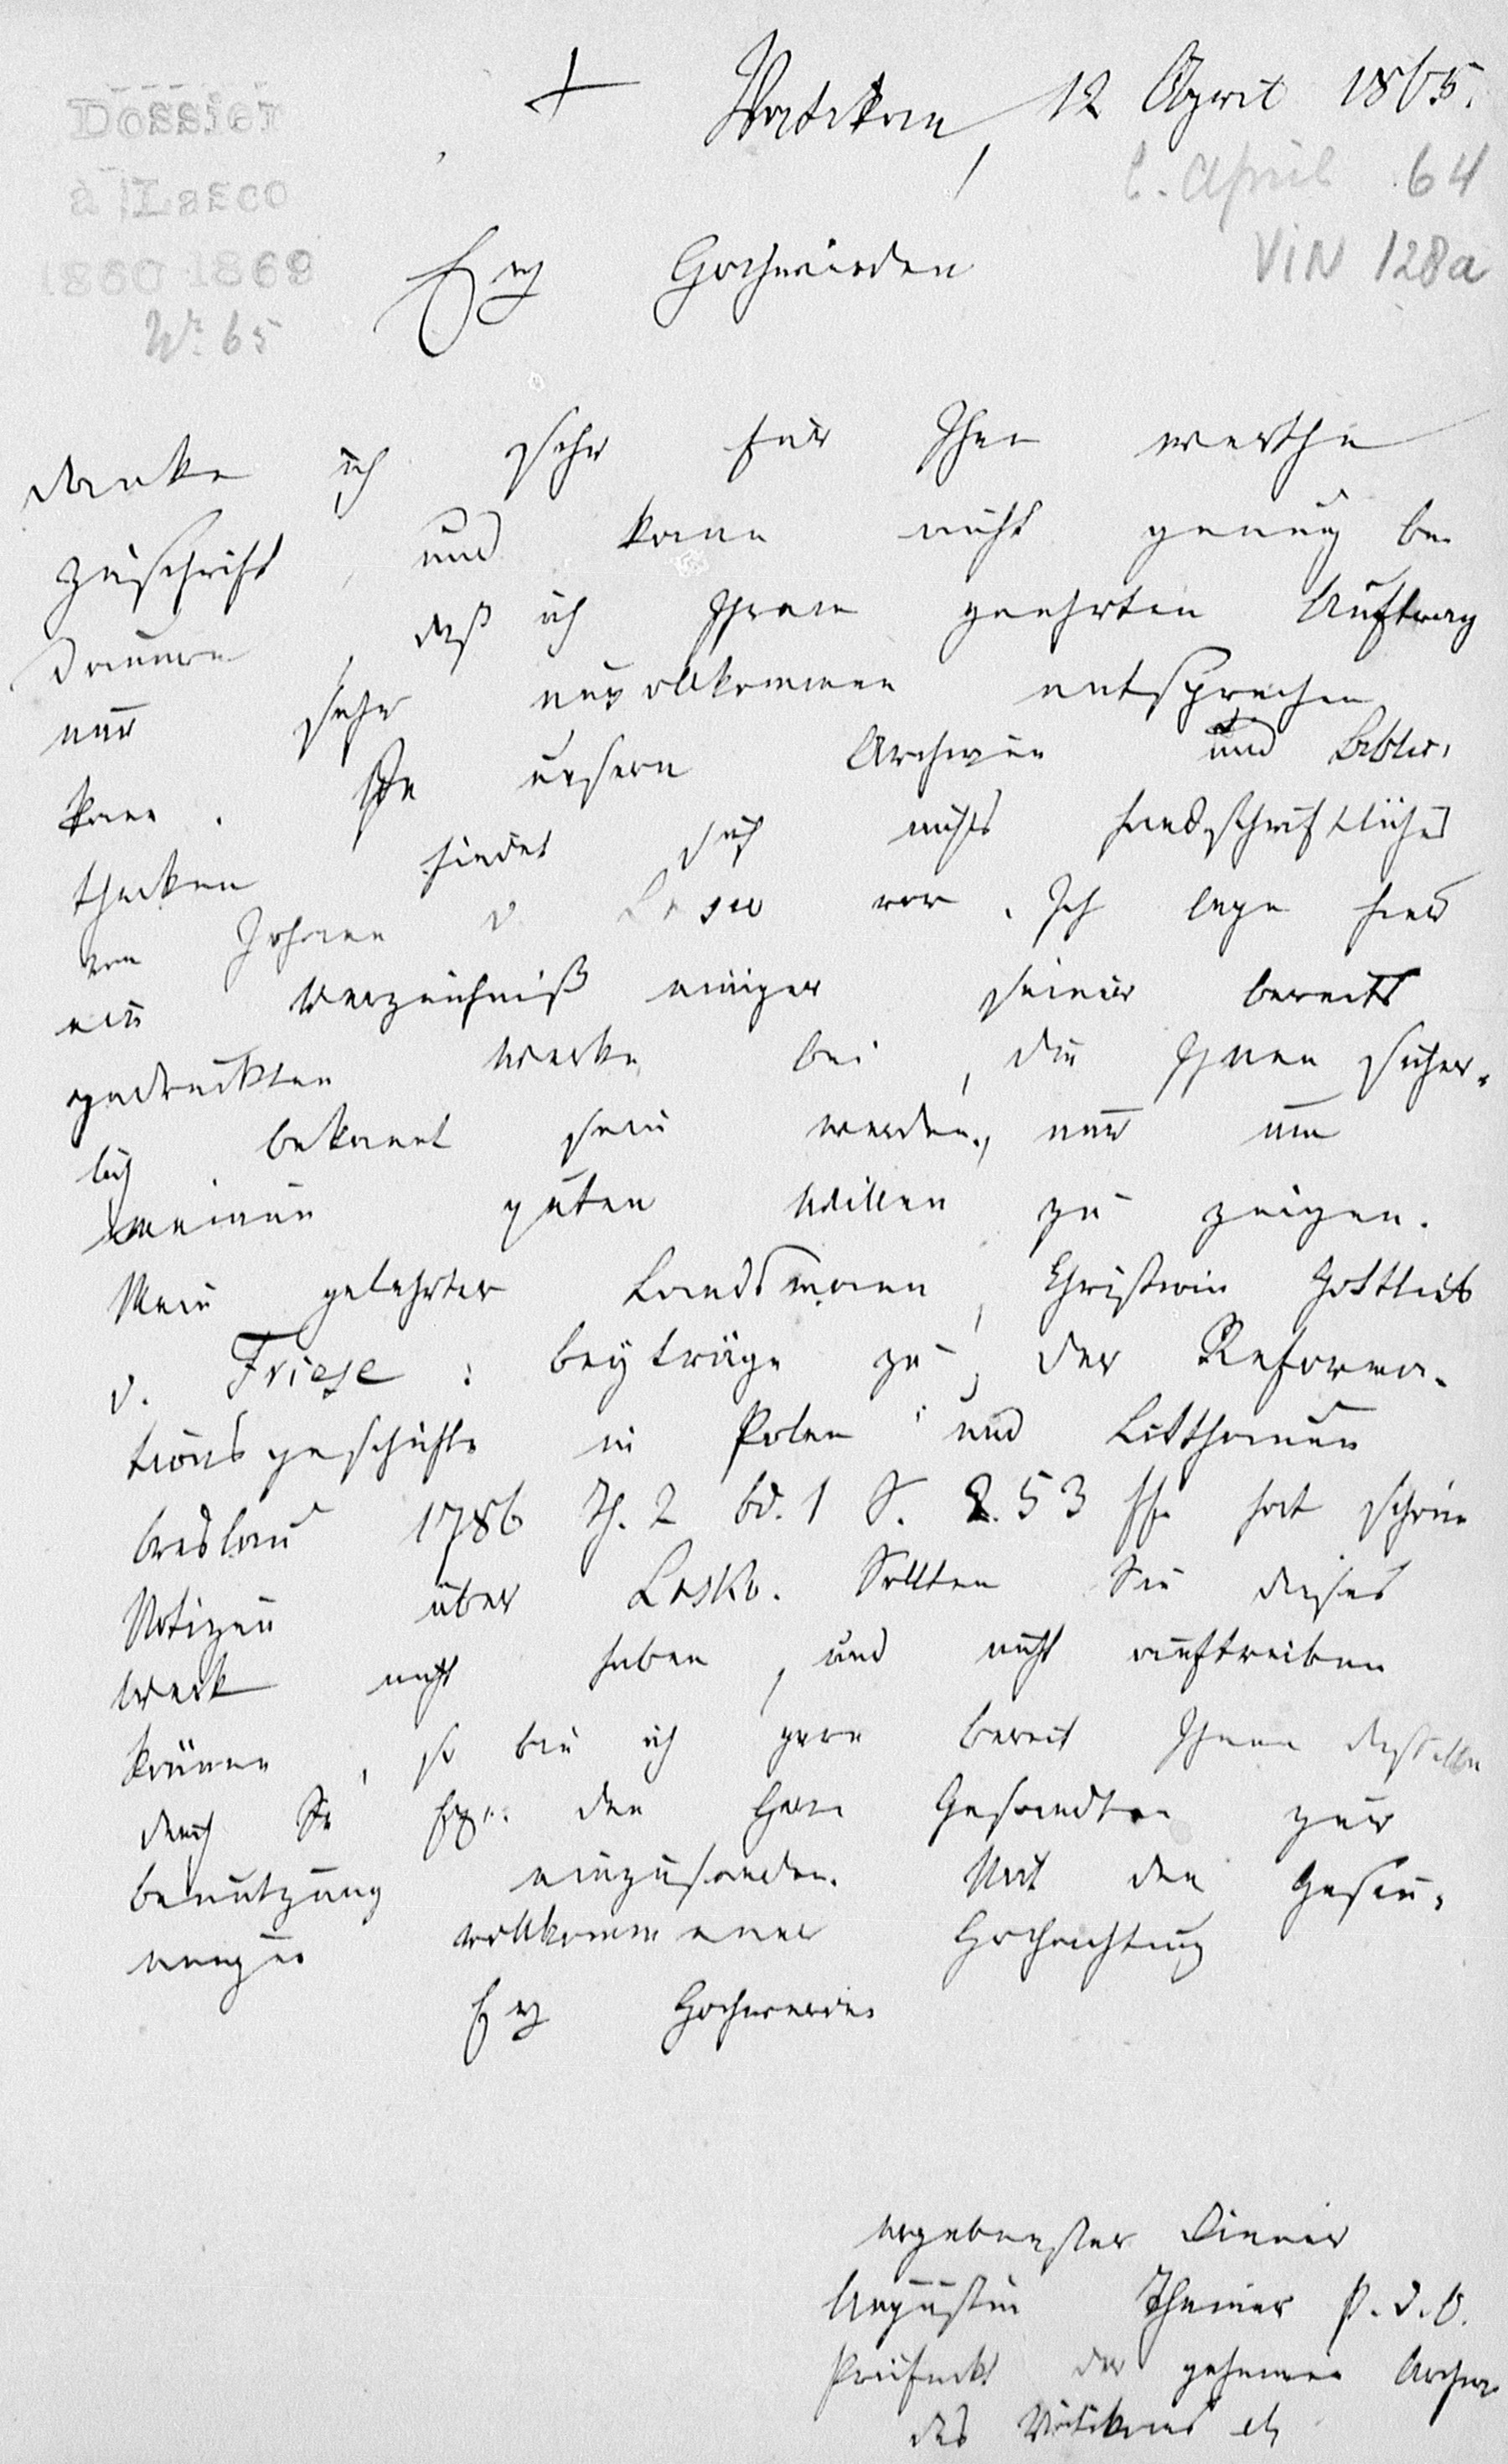 Dossier
à Lasco
1860-1869
Nr. 65
+ Vatikan, 12 April 1865.
6. April 64
VIN 128a
Ew Hochwürden
danke ich sehr für Ihre werthe
Zuschrift, und kann nicht genug be
dauern, daß ich Ihrem geehrten Auftrag
nur sehr unvollkommen entsprechen
kann. In unsern Archiven und Biblio-
theken findet sich nichts handschriftliches
von Johann v Lasco vor. Ich lege hier
ein Verzeichniß einiger seiner bereits
gedruckten Werke bei, die Ihnen sicher-
lich bekannt sein werden, nur um
meinen guten Willen zu zeigen.
Mein gelehrter Landsmann, Christian Gottlieb
v. Friese: Beyträge zu der Reforma-
tionsgeschichte in Polen und Litthauen
Breslau 1786 Th. 2 Bd. 1 S. 253 ff. hat schöne
Notizen über Lasko. Sollten Sie dieses
Werk nicht haben, und nicht auftreiben
können, so bin ich gern bereit Ihnen dasselbe
durch Se Exc. den Herrn Gesandten zur
Benutzung einzusenden. Mit den Gesin-
nungen vollkommener Hochachtung
Ew Hochwürden
ergebenster Diener
Augustin Theiner P. d. O.
Präfect der geheimen Archive
des Vatikans etc